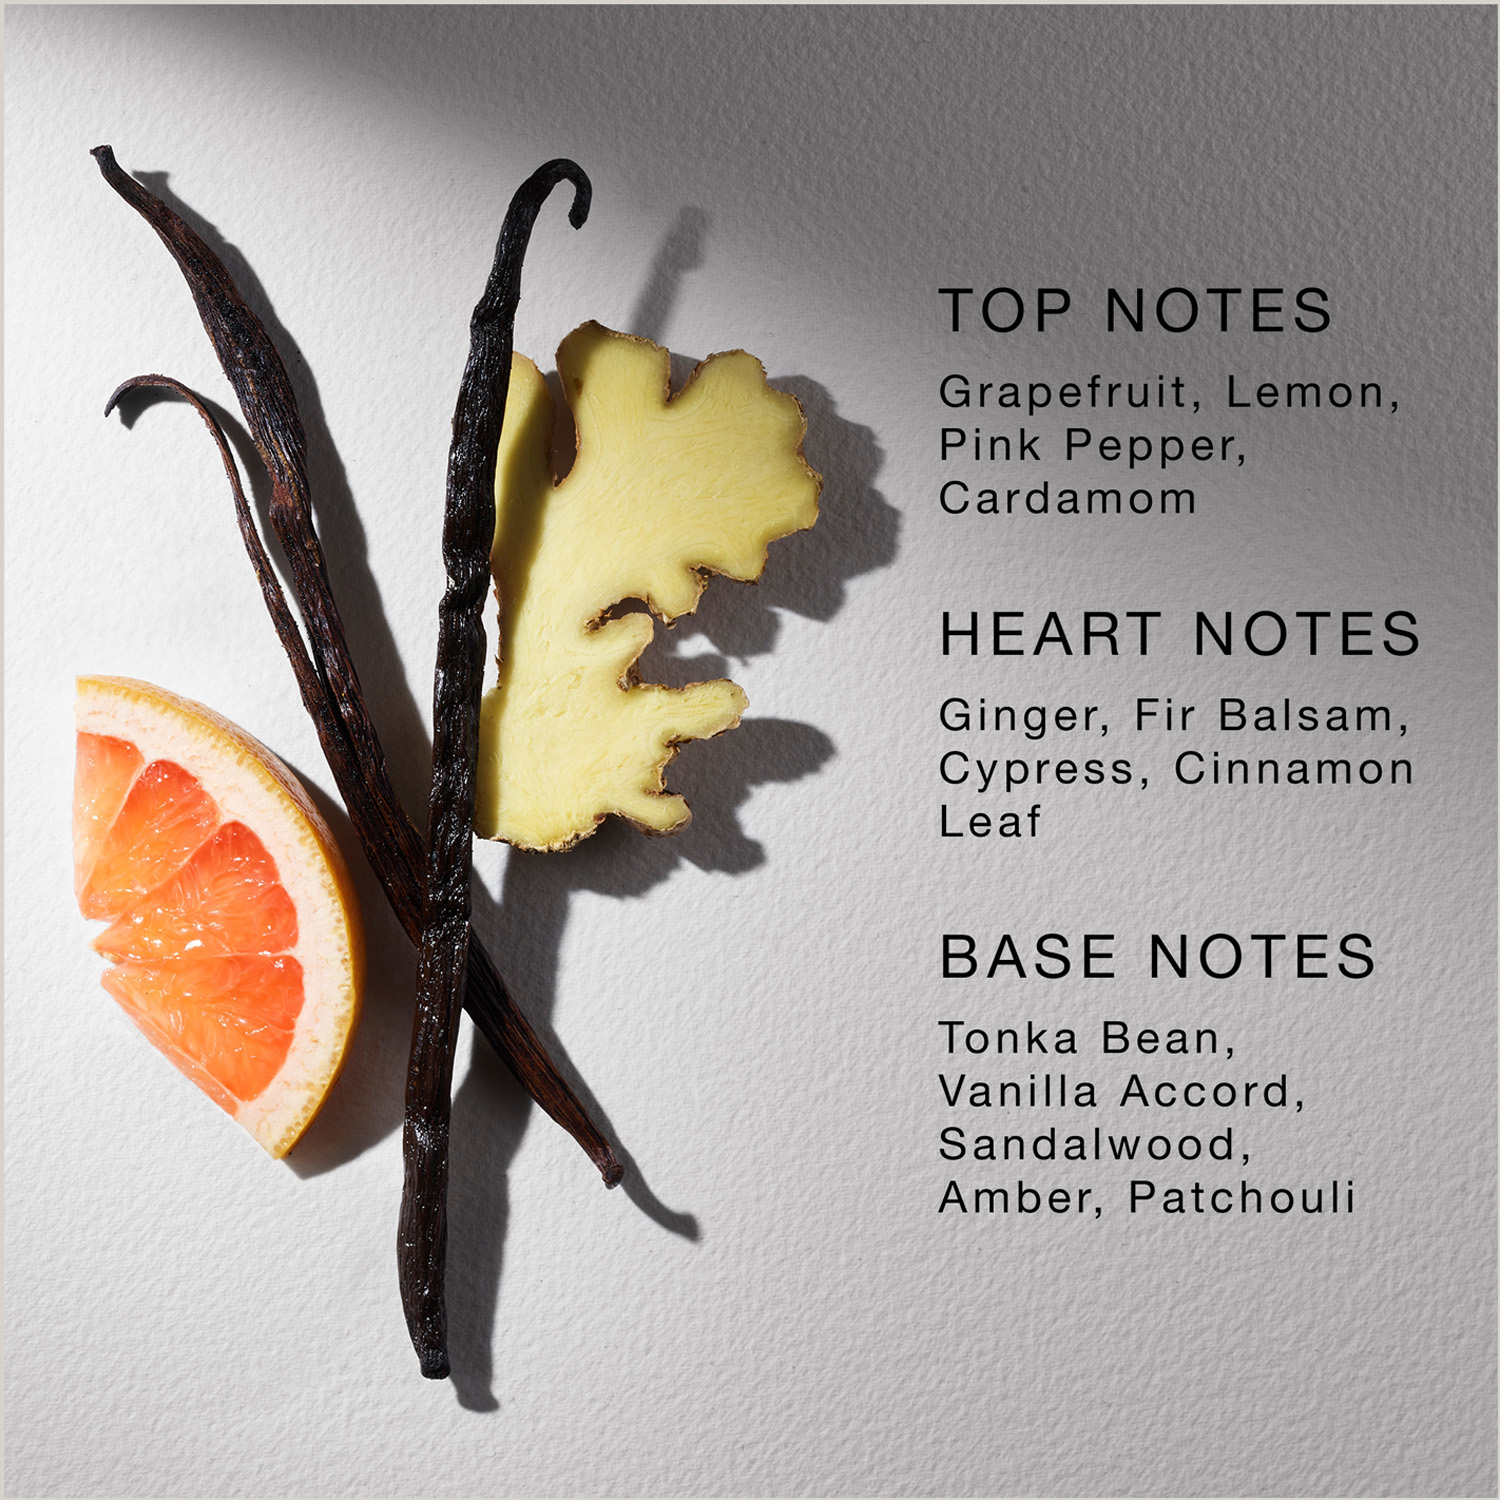 TOP NOTES
Grapefruit, Lemon,
Pink Pepper,
Cardamom
HEART NOTES
Ginger, Fir Balsam,
Cypress, Cinnamon
Leaf
BASE NOTES
Tonka Bean,
Vanilla Accord,
Sandalwood,
Amber, Patchouli